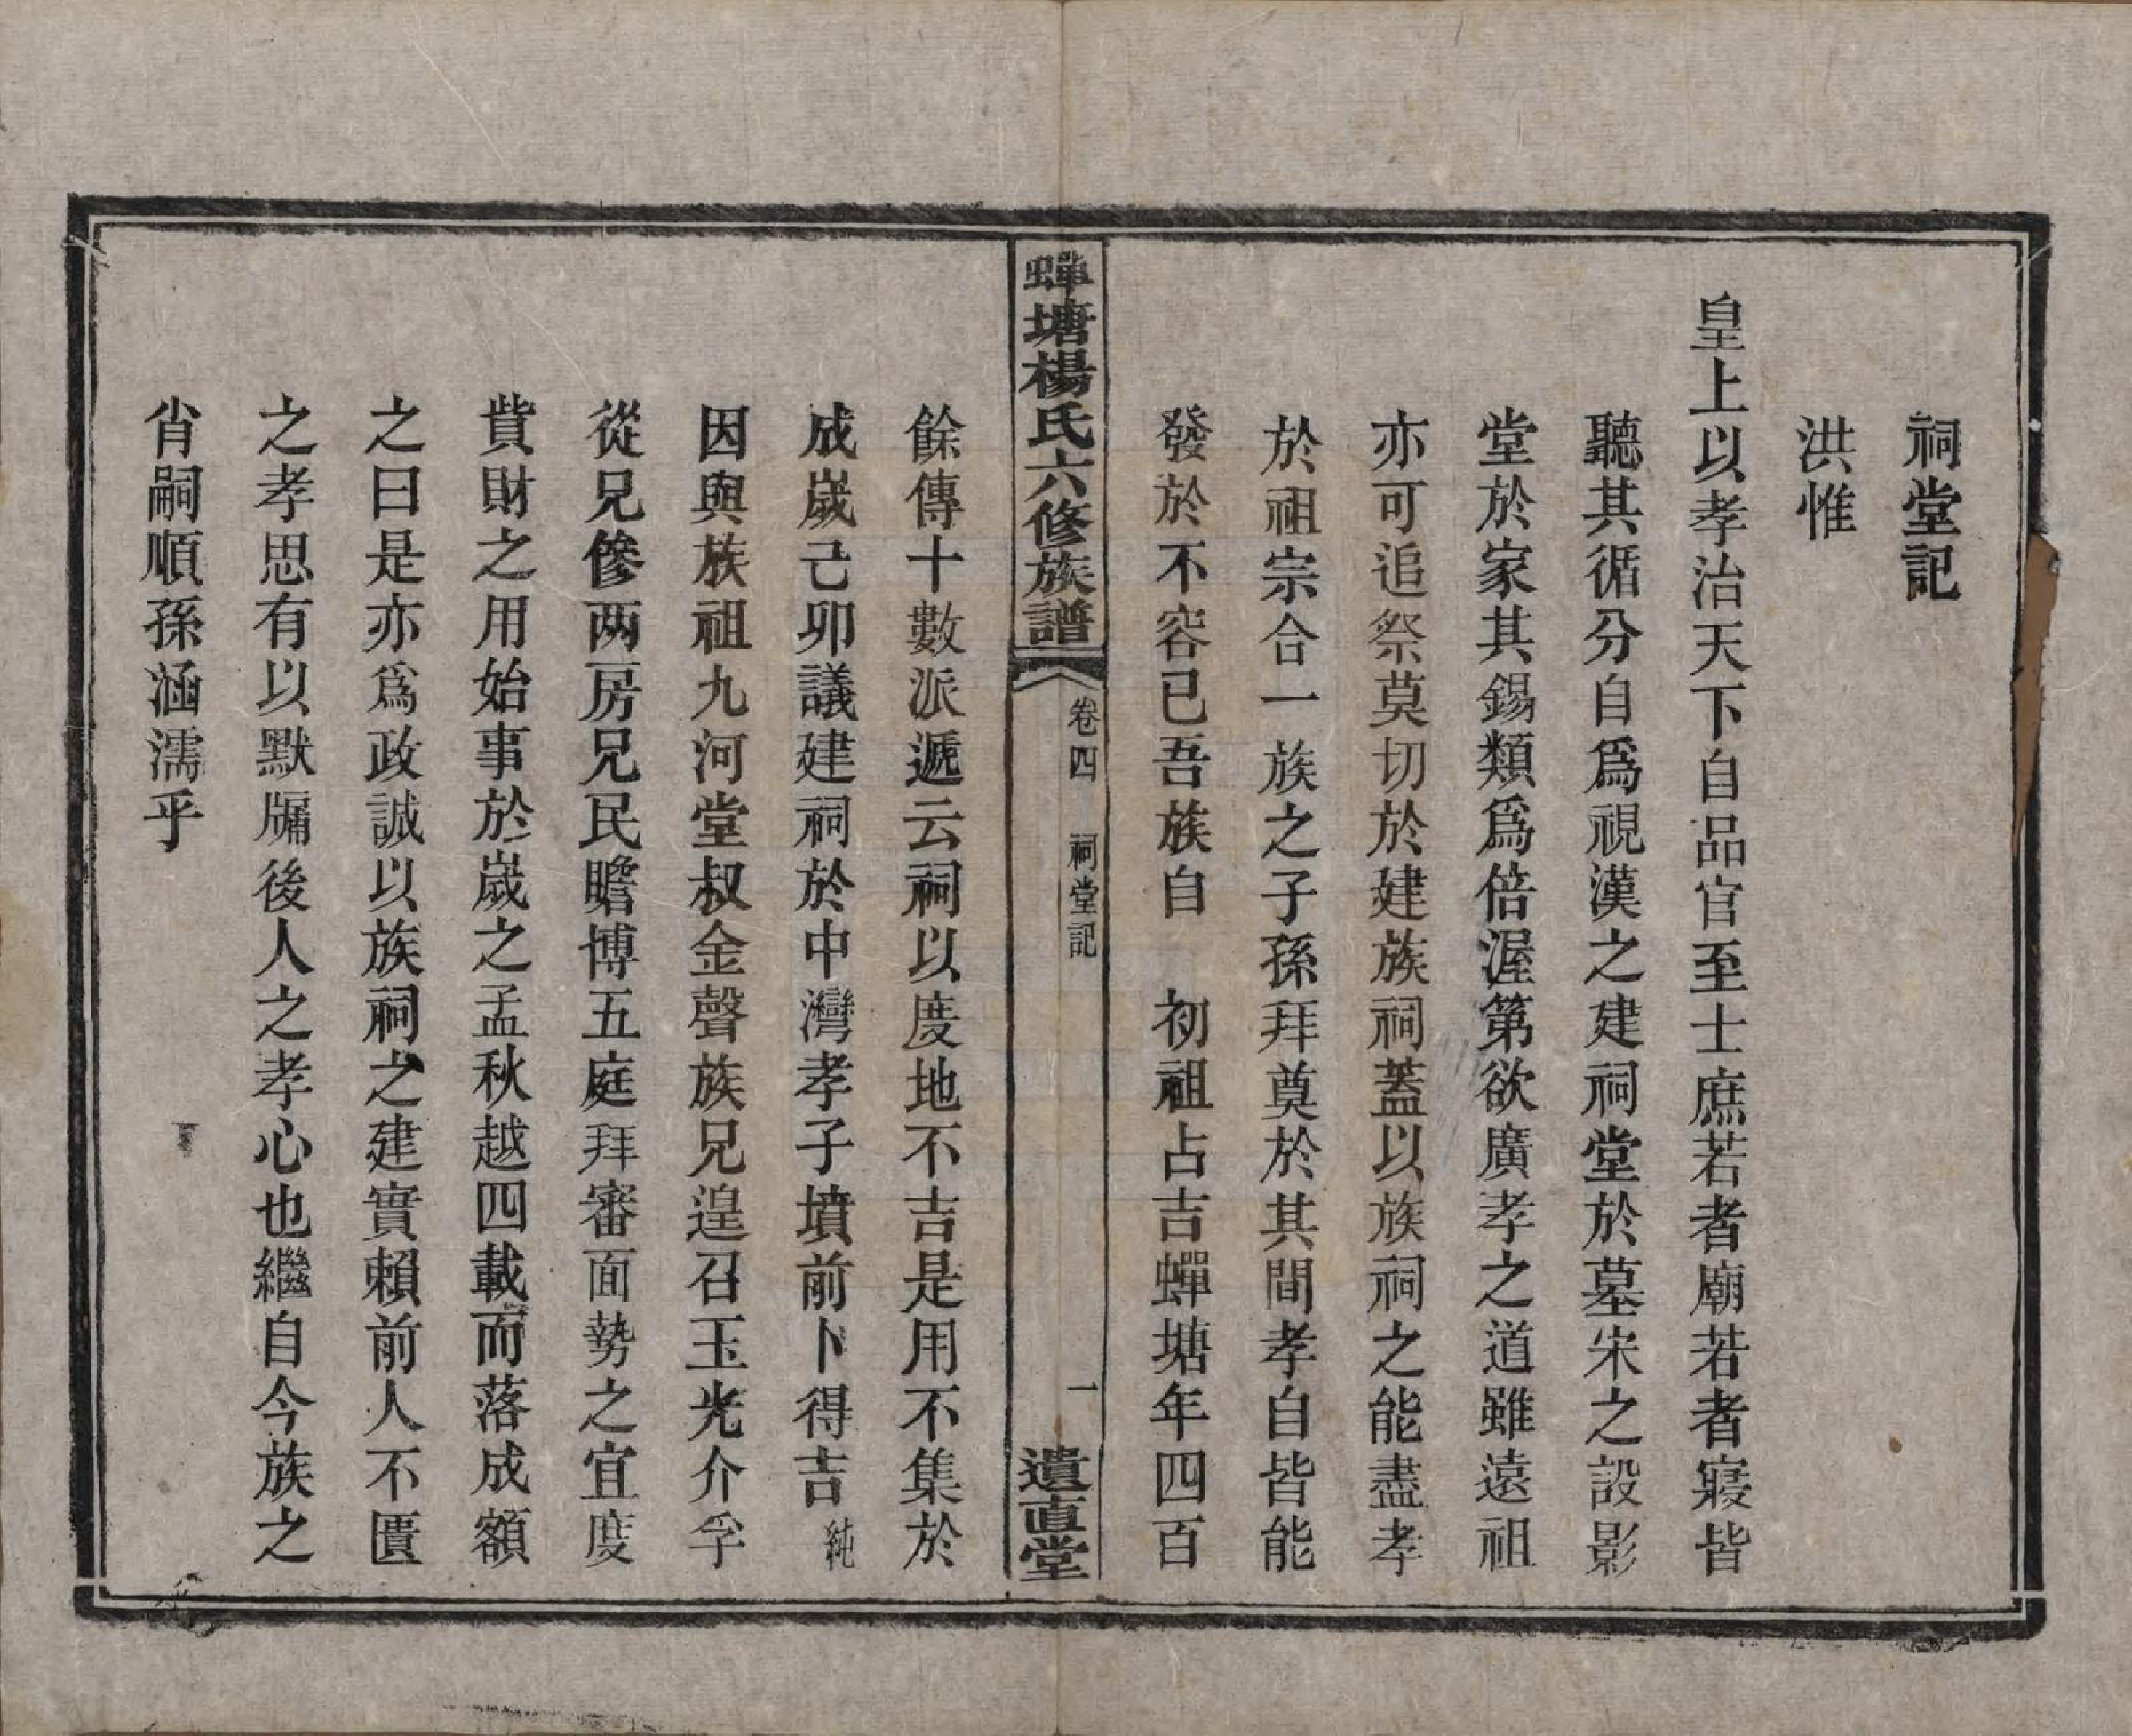 祠堂記
洪惟
皇上以孝治天下自品官至士庶若者廟若者寢皆
聽其循分自爲視漢之建祠堂於墓宋之設影
堂於家其錫類爲倍渥第欲廣孝之道雖遠祖
亦可追祭莫切於建族祠蓋以族祠之能盡孝
於祖宗合一族之子孫拜奠於其間孝自皆能
發於不容已吾族自　初祖占吉蟬塘年四百
蟬塘楊氏六修族譜　卷四　祠堂記　一　遺直堂
餘傳十數派遞云祠以度地不吉是用不集於
成嵗己卯議建祠於中灣孝子墳前卜得吉純
因與族祖九河堂叔金聲族兄遑召玉光介孚
從兄修两房兄民瞻博五庭拜審面勢之宜度
貲財之用始事於嵗之孟秋越四載而落成額
之曰是亦爲政誠以族祠之建實賴前人不匱
之孝思有以默牖後人之孝心也繼自今族之
肖嗣順孫涵濡乎